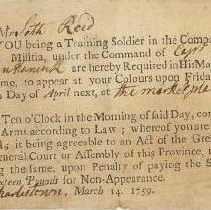 Mr Seth Reed
YOU being a Training Soldier in the Compa
Militia, under the Command of Capt
are hereby Required in His Ma
me, to appear at your Colours upon Frida
h Day of April next, at the marketpla
Ten o'Clock in the Morning of said Day, co
Arms according to Law; whereof you are
l, it being agreeable to an Act of the Gre
General Court or Assembly of this Province,
ng the same, upon Penalty of paying the S
xteen Pounds for Non-Appearance.
Charlestown, March 14, 1759.